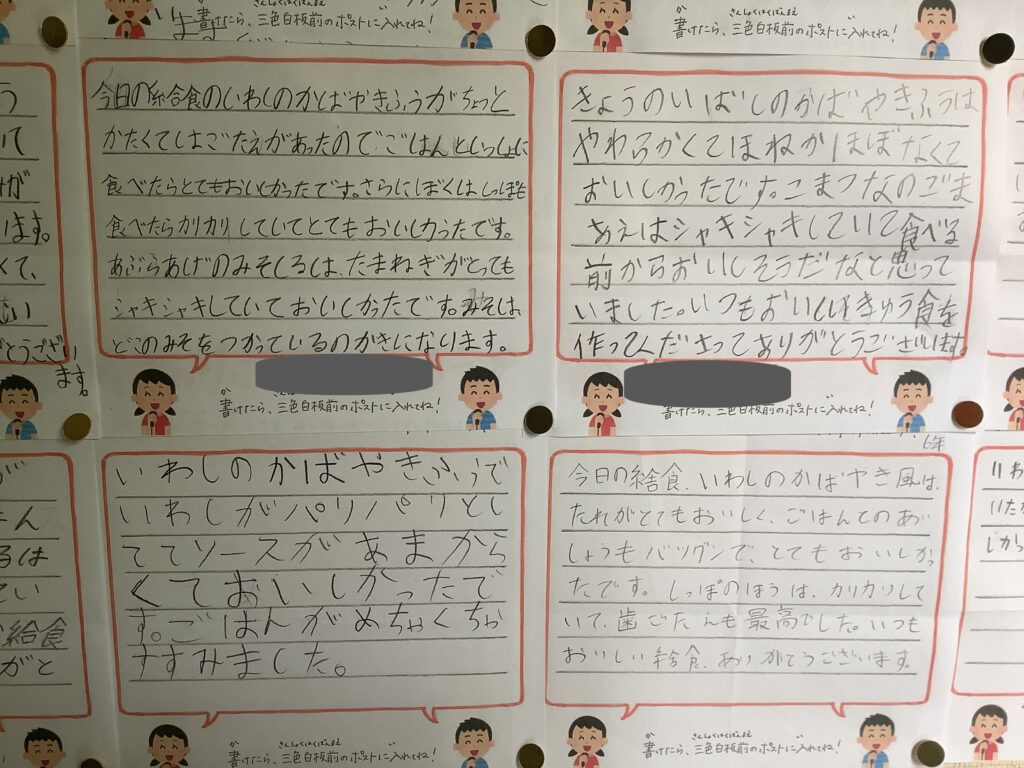 さんしょくはくばんまえ
書けたら、三色白板前のポストに入れてね!
か さんしょくはくばんまえ
書けたら、三色白板前のポストに入れてね!
います。
くて、
とうござい
ます。
今日の給食のいわしのかばやきふうがちょっと
かたくてしはごたえがあったので、ごはんといっしょに
食べたらとてもおいしかったです。さらにぼくはしっぽも
食べたらカリカリしていてとてもおいしかったです。
あぶらあげのみそしるは、たまねぎがとっても
シャキシャキしていておいしかったです。みそは
どこのみそをつかっているのかきになります。
か
書けたら、三色白板前のポストに入れてね!
きょうのいばしのかばやきふうは
やわらかくてほねがほぼなくて
おいしかったです。こまつなのごま
あえはシャキシャキしていて食べる
前からおいしそうだなと思って
いました。いつもおいしいきゅう食を
作ってくださってありがとうございます。
書けたら、三色白板前のポストに入れてね!
るは
給食
がと
いわしのかばやきふうで
いわしがパリパリとし
ててソースがあまから
くておいしかったで
す。ごはんがめちゃくちゃ
すすみました。
か さんしょくはくばんまえ
書けたら、三色白板前のポストに入れてね!
6年
今日の給食、いわしのかばやき風は、
たれがとてもおいしく、ごはんとのあい
しょうもバツグンで、とてもおいしかっ
たです。しっぽのほうは、カリカリして
いて、歯ごたえも最高でした。いつも
おいしい給食、ありがとうございます。
か さんしょくはくばんまえ
書けたら、三色白板前のポストに入れてね!
いわ
しから